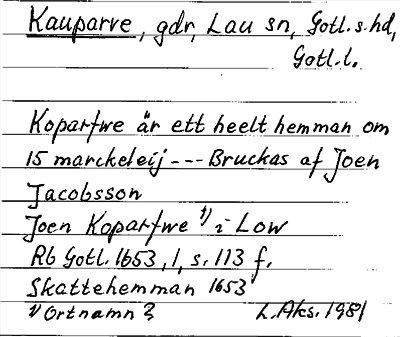 Kauparve, gdr, Lau sn, Gotl. s. hd,
Gotl. l.
Koparfwe är ett heelt hemman om
15 marckeleij --- Bruckas af Joen
Jacobsson
Joen Koparfwe 1) i Low
Rb Gotl. 1653, 1, s. 113 f.
Skattehemman 1653
1) Ortnamn?
L. Aks. 1981